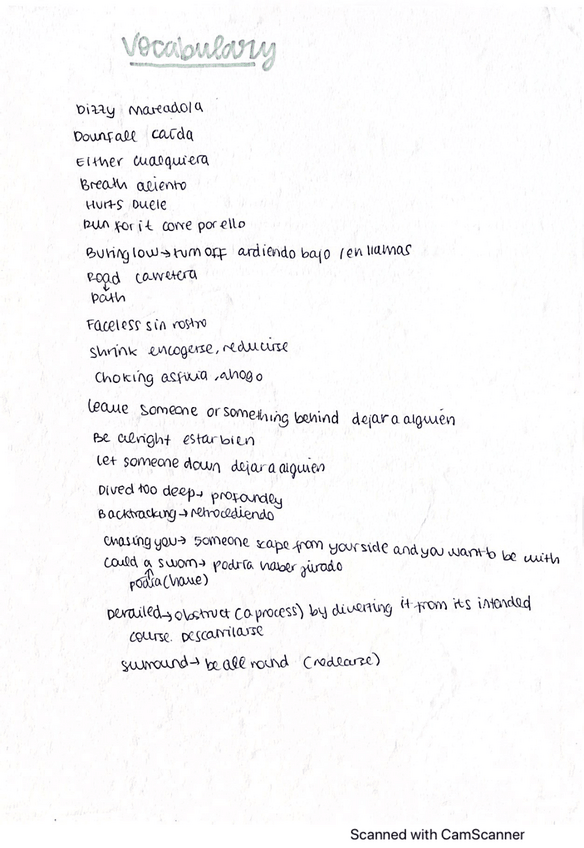 Vocabulary
Dizzy mareado/a
Downfall caída
Either cualquiera
Breath aliento
Hurts Duele
Run for it corre por ello
Buring low → turn off ardiendo bajo / en llamas
Road carretera
path
Faceless sin rostro
Shrink encogerse, reducirse
Choking asfixia, ahogo
Leave someone or something behind dejar a alguién
Be alright estar bien
Let someone down dejar a alguien
Dived too deep → profoundley
Backtracking → retrocediendo
Chasing you → someone scape from your side and you want to be with
Could a sworn → podría haber jurado
podia (have)
Derailed → obstruct (a process) by diverting it from its intended
course. Descarrilarse
Surround → be all round (rodearse)
Scanned with CamScanner